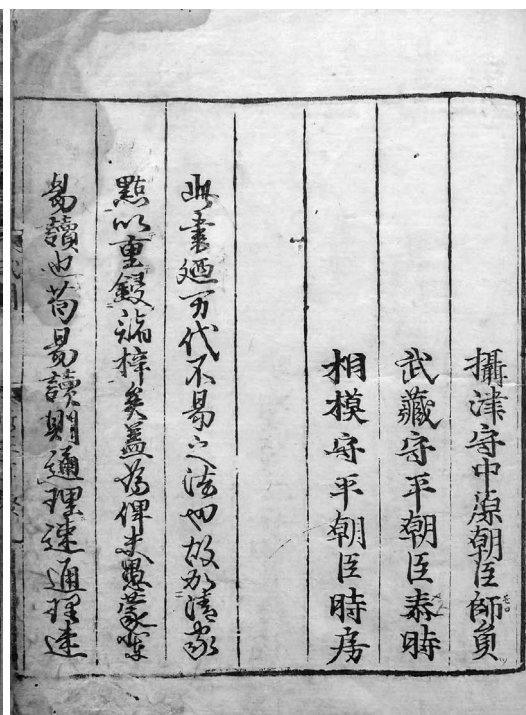 攝津守中原朝臣師員
武藏守平朝臣泰時
相模守平朝臣時房
此書廼万代不易之法也故加清家
點以重鋟諸梓矣蓋為俾末學蒙
易讀也苟易讀則通理速通理速